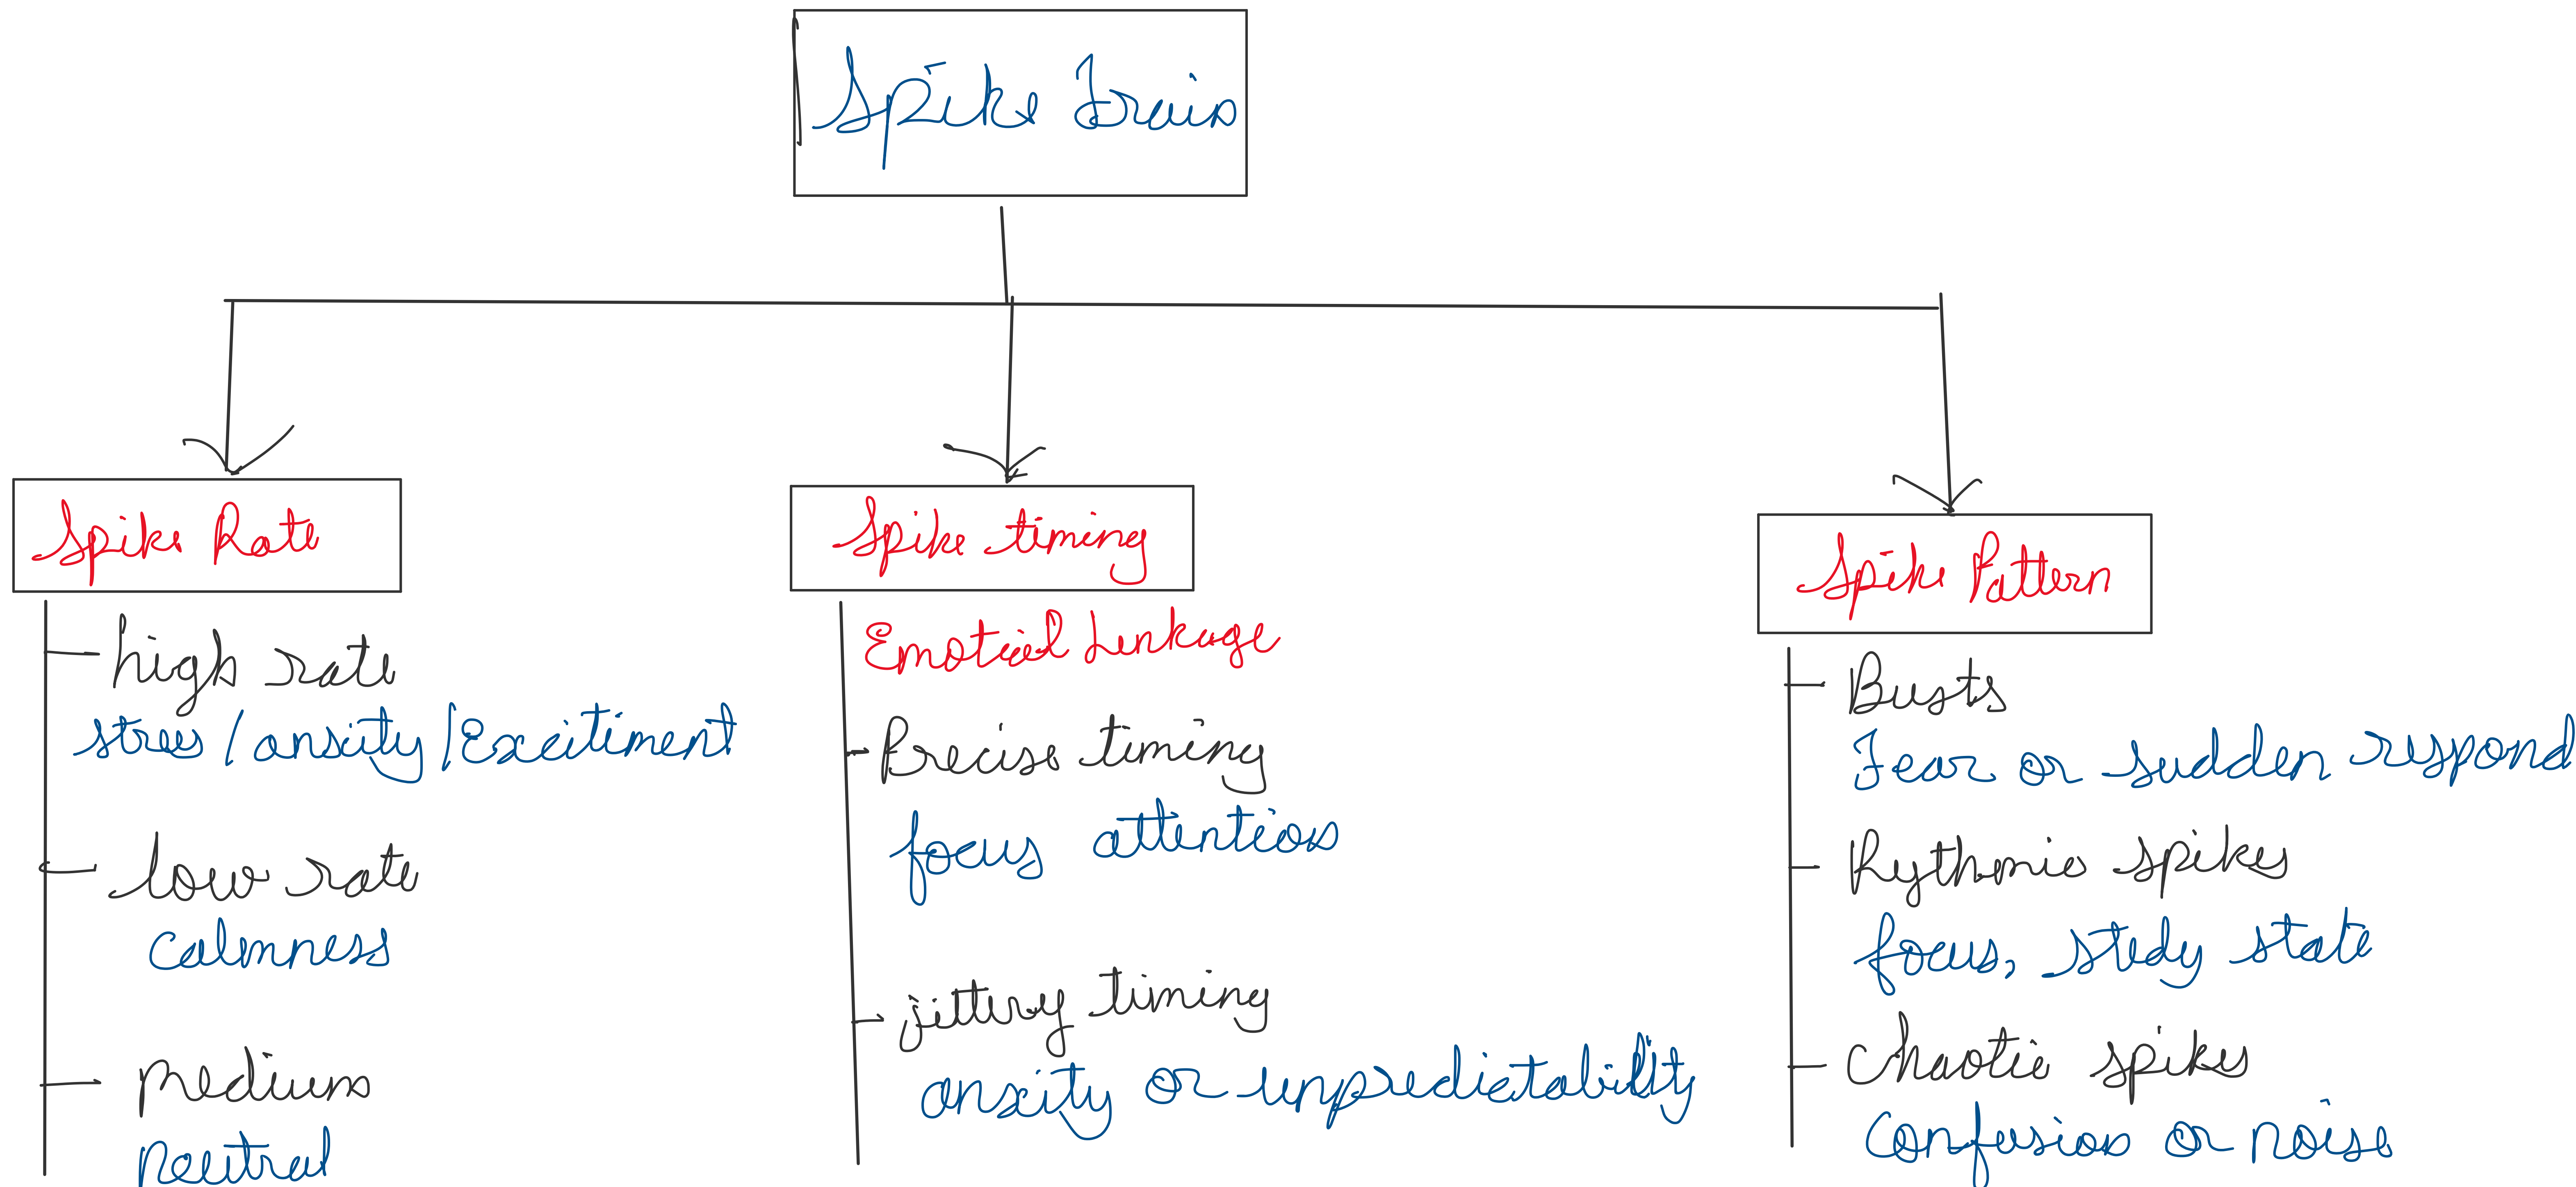 Spike Train
Spike Rate
high rate
stress / ansity / Excitiment
low rate
Calmness
medium
neutral
Spike timing
Emotial Linkage
Precise timing
focus attention
jittery timing
anxity or unpredictability
Spike Pattern
Busts
Fear or sudden respond
Rythmic spikes
focus, stedy state
Chaotic spikes
Confusion or noise